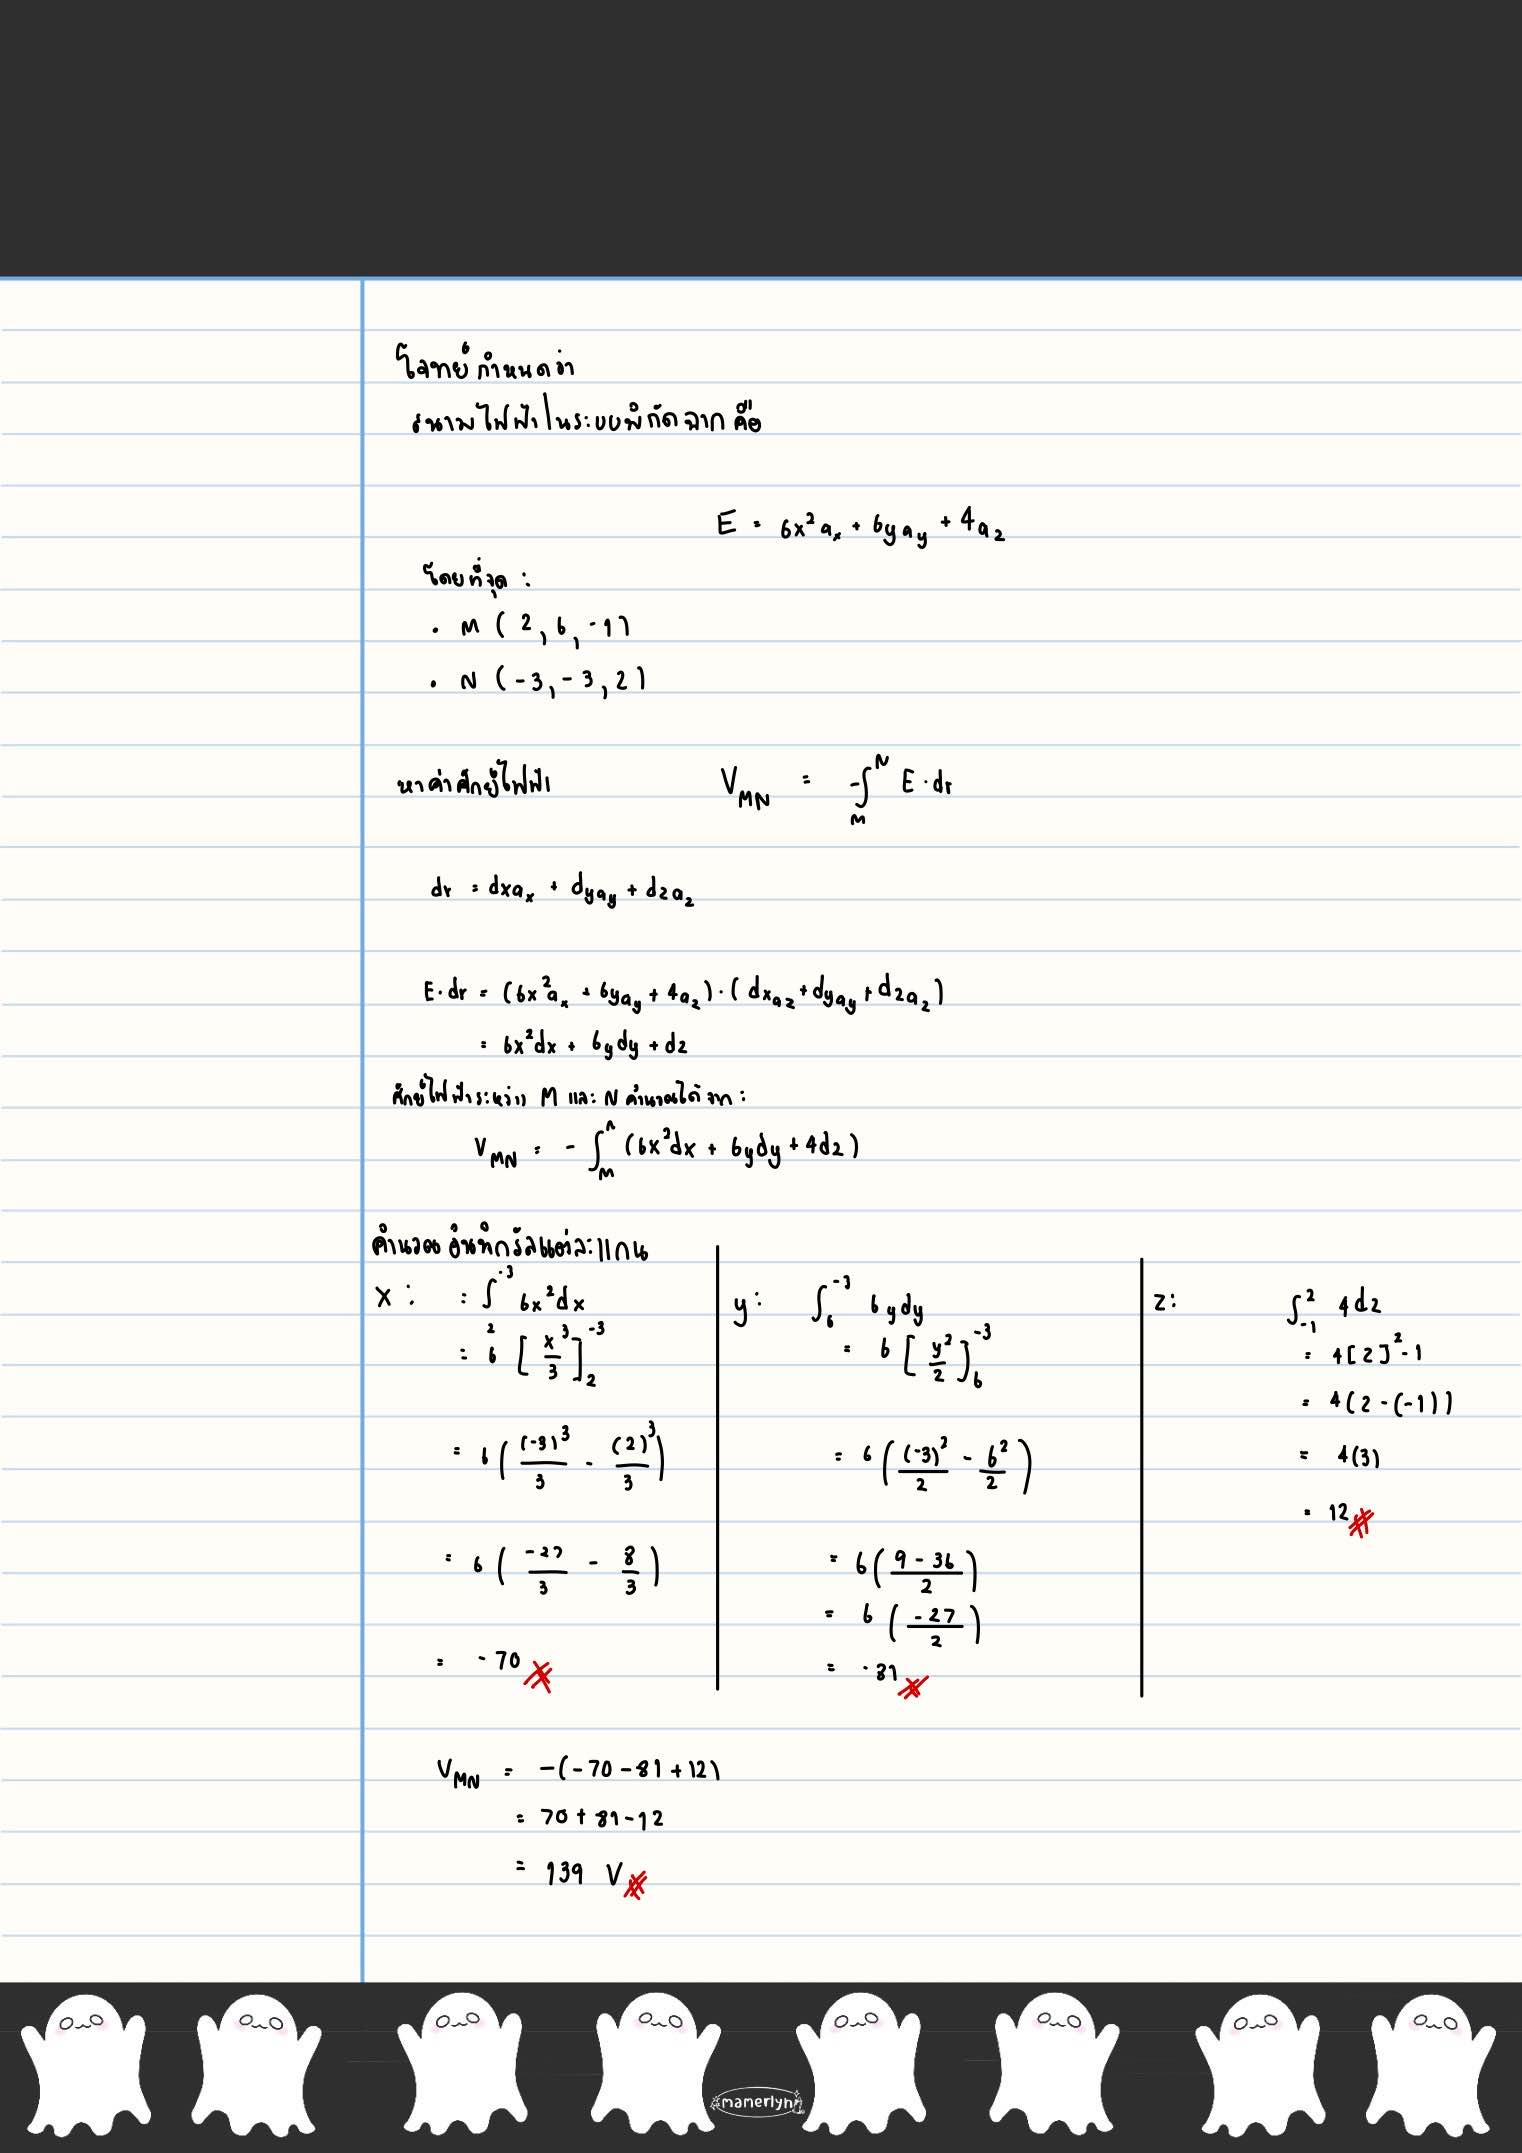 โจทย์กำหนดว่า
สนามไฟฟ้าในระบบพิกัดฉาก คือ
E = 6x²aₓ + 6ya_y + 4a_z
โดยที่จุด :
• M ( 2, 6, -1)
• N (-3, -3, 2)
หาค่าศักย์ไฟฟ้า V_MN = -∫_M^N E · dr
dr = dxaₓ + dya_y + dza_z
E·dr = (6x²aₓ + 6ya_y + 4a_z) · (dxa_z + dya_y + dza_z)
= 6x²dx + 6ydy + dz
ศักย์ไฟฟ้าระหว่าง M และ N คำนวณได้จาก :
V_MN = - ∫_M^N (6x²dx + 6ydy + 4dz)
คำนวณ อินทิกรัลแต่ละแกน
x : = ∫_2^-3 6x²dx
= 6 [x³/3]_2^-3
= 6 ((-3)³/3 - (2)³/3)
= 6 (-27/3 - 8/3)
= -70
y : ∫_6^-3 6ydy
= 6 [y²/2]_6^-3
= 6 ((-3)²/2 - 6²/2)
= 6 (9 - 36/2)
= 6 (-27/2)
= -81
z : ∫_-1^2 4dz
= 4[z]²-1
= 4(2-(-1))
= 4(3)
= 12
V_MN = -(-70 - 81 + 12)
= 70 + 81 - 12
= 139 V
mamerlyn